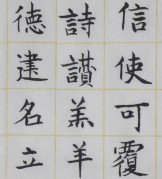 信使可覆
詩讃羔羊
德建名立